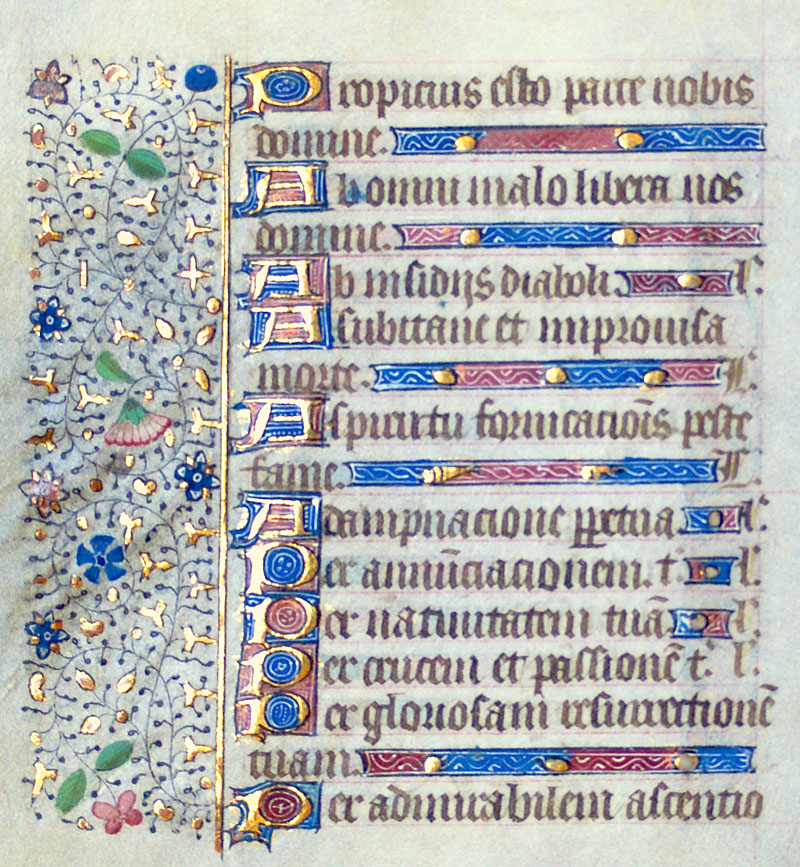 Propicius esto parce nobis
domine.
Ab omni malo libera nos
domine.
Ab insidijs diaboli. l'.
A subitanea et improuisa
morte. L'.
A spiritu fornicacōis peste
fame. L'.
A dampnacione ꝑpetua l'.
Per annūciacionem. t'. l'.
Per natiuitatem tuā l'.
Per crucem et passionē t'. l'.
Per gloriosam resurrectionē
tuam.
Per admirabilem ascentio